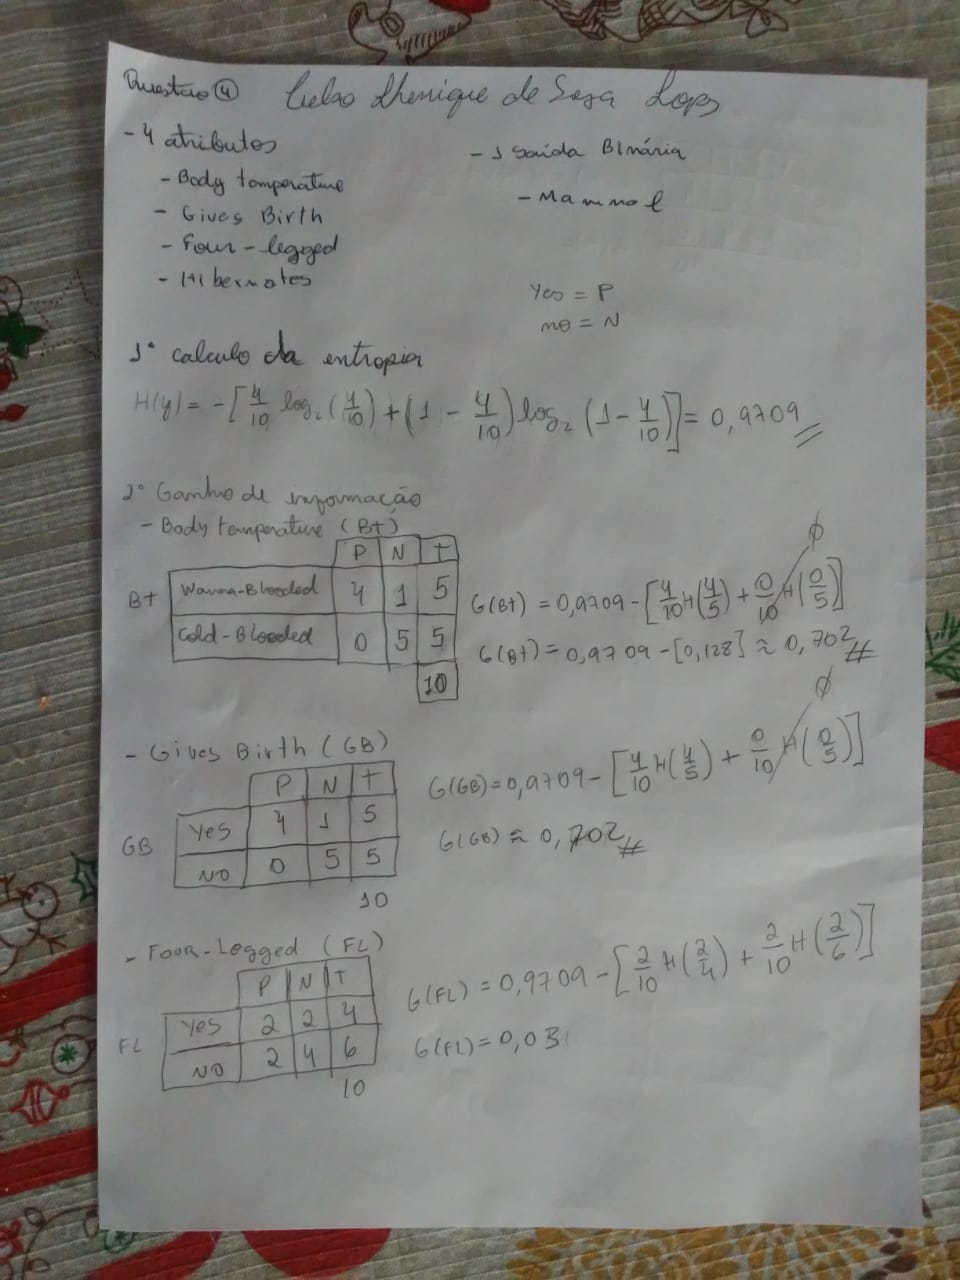 Questão 4 Celso Lhenrique de Sosa Lopes
- 4 atributos
- Body temperature
- Gives Birth
- Four-legged
- Hibernates
- 1 Saída Binária
- Mammal
Yes = P
no = N
1° calculo da entropia
H(y) = -[4/10 log₂(4/10) + (1 - 4/10) log₂(1 - 4/10)] = 0,9709
2° Ganho de informação
- Body temperature (Bt)
P N T
Bt Warma-Blooded 4 1 5
Cold-Blooded 0 5 5
10
G(Bt) = 0,9709 - [4/10 H(4/5) + 0/10 H(0/5)] ϕ
G(Bt) = 0,9709 - [0,128] ≈ 0,702
- Gives Birth (GB)
P N T
GB Yes 4 1 5
NO 0 5 5
10
G(GB) = 0,9709 - [4/10 H(4/5) + 0/10 H(0/5)] ϕ
G(GB) ≈ 0,702
- Four-Legged (FL)
P N T
FL Yes 2 2 4
NO 2 4 6
10
G(FL) = 0,9709 - [2/10 H(2/4) + 2/10 H(2/6)]
G(FL) = 0,03